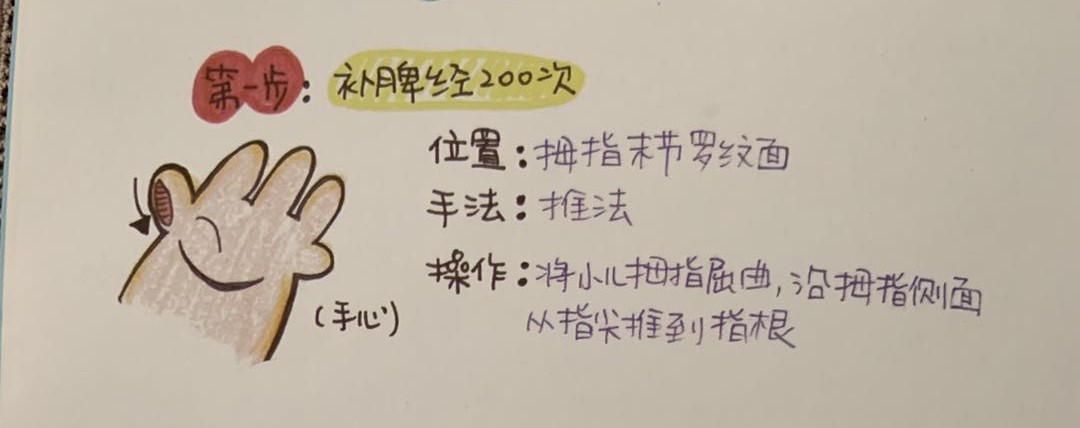 第一步：补脾经200次
位置：拇指末节罗纹面
手法：推法
操作：将小儿拇指屈曲，沿拇指侧面
从指尖推到指根
（手心）